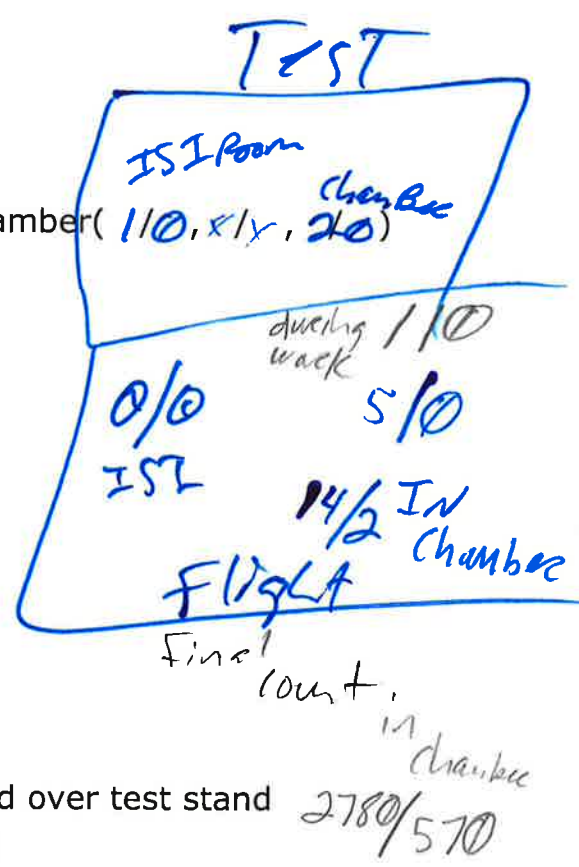 TEST
ISI Room
Chamber
amber( 1/0, x/x, 2/0)
during 1/0
work
0/0 5/0
ISI
14/2 IN
Chamber
Flight
Final
count.
in
chamber
d over test stand 2780/570